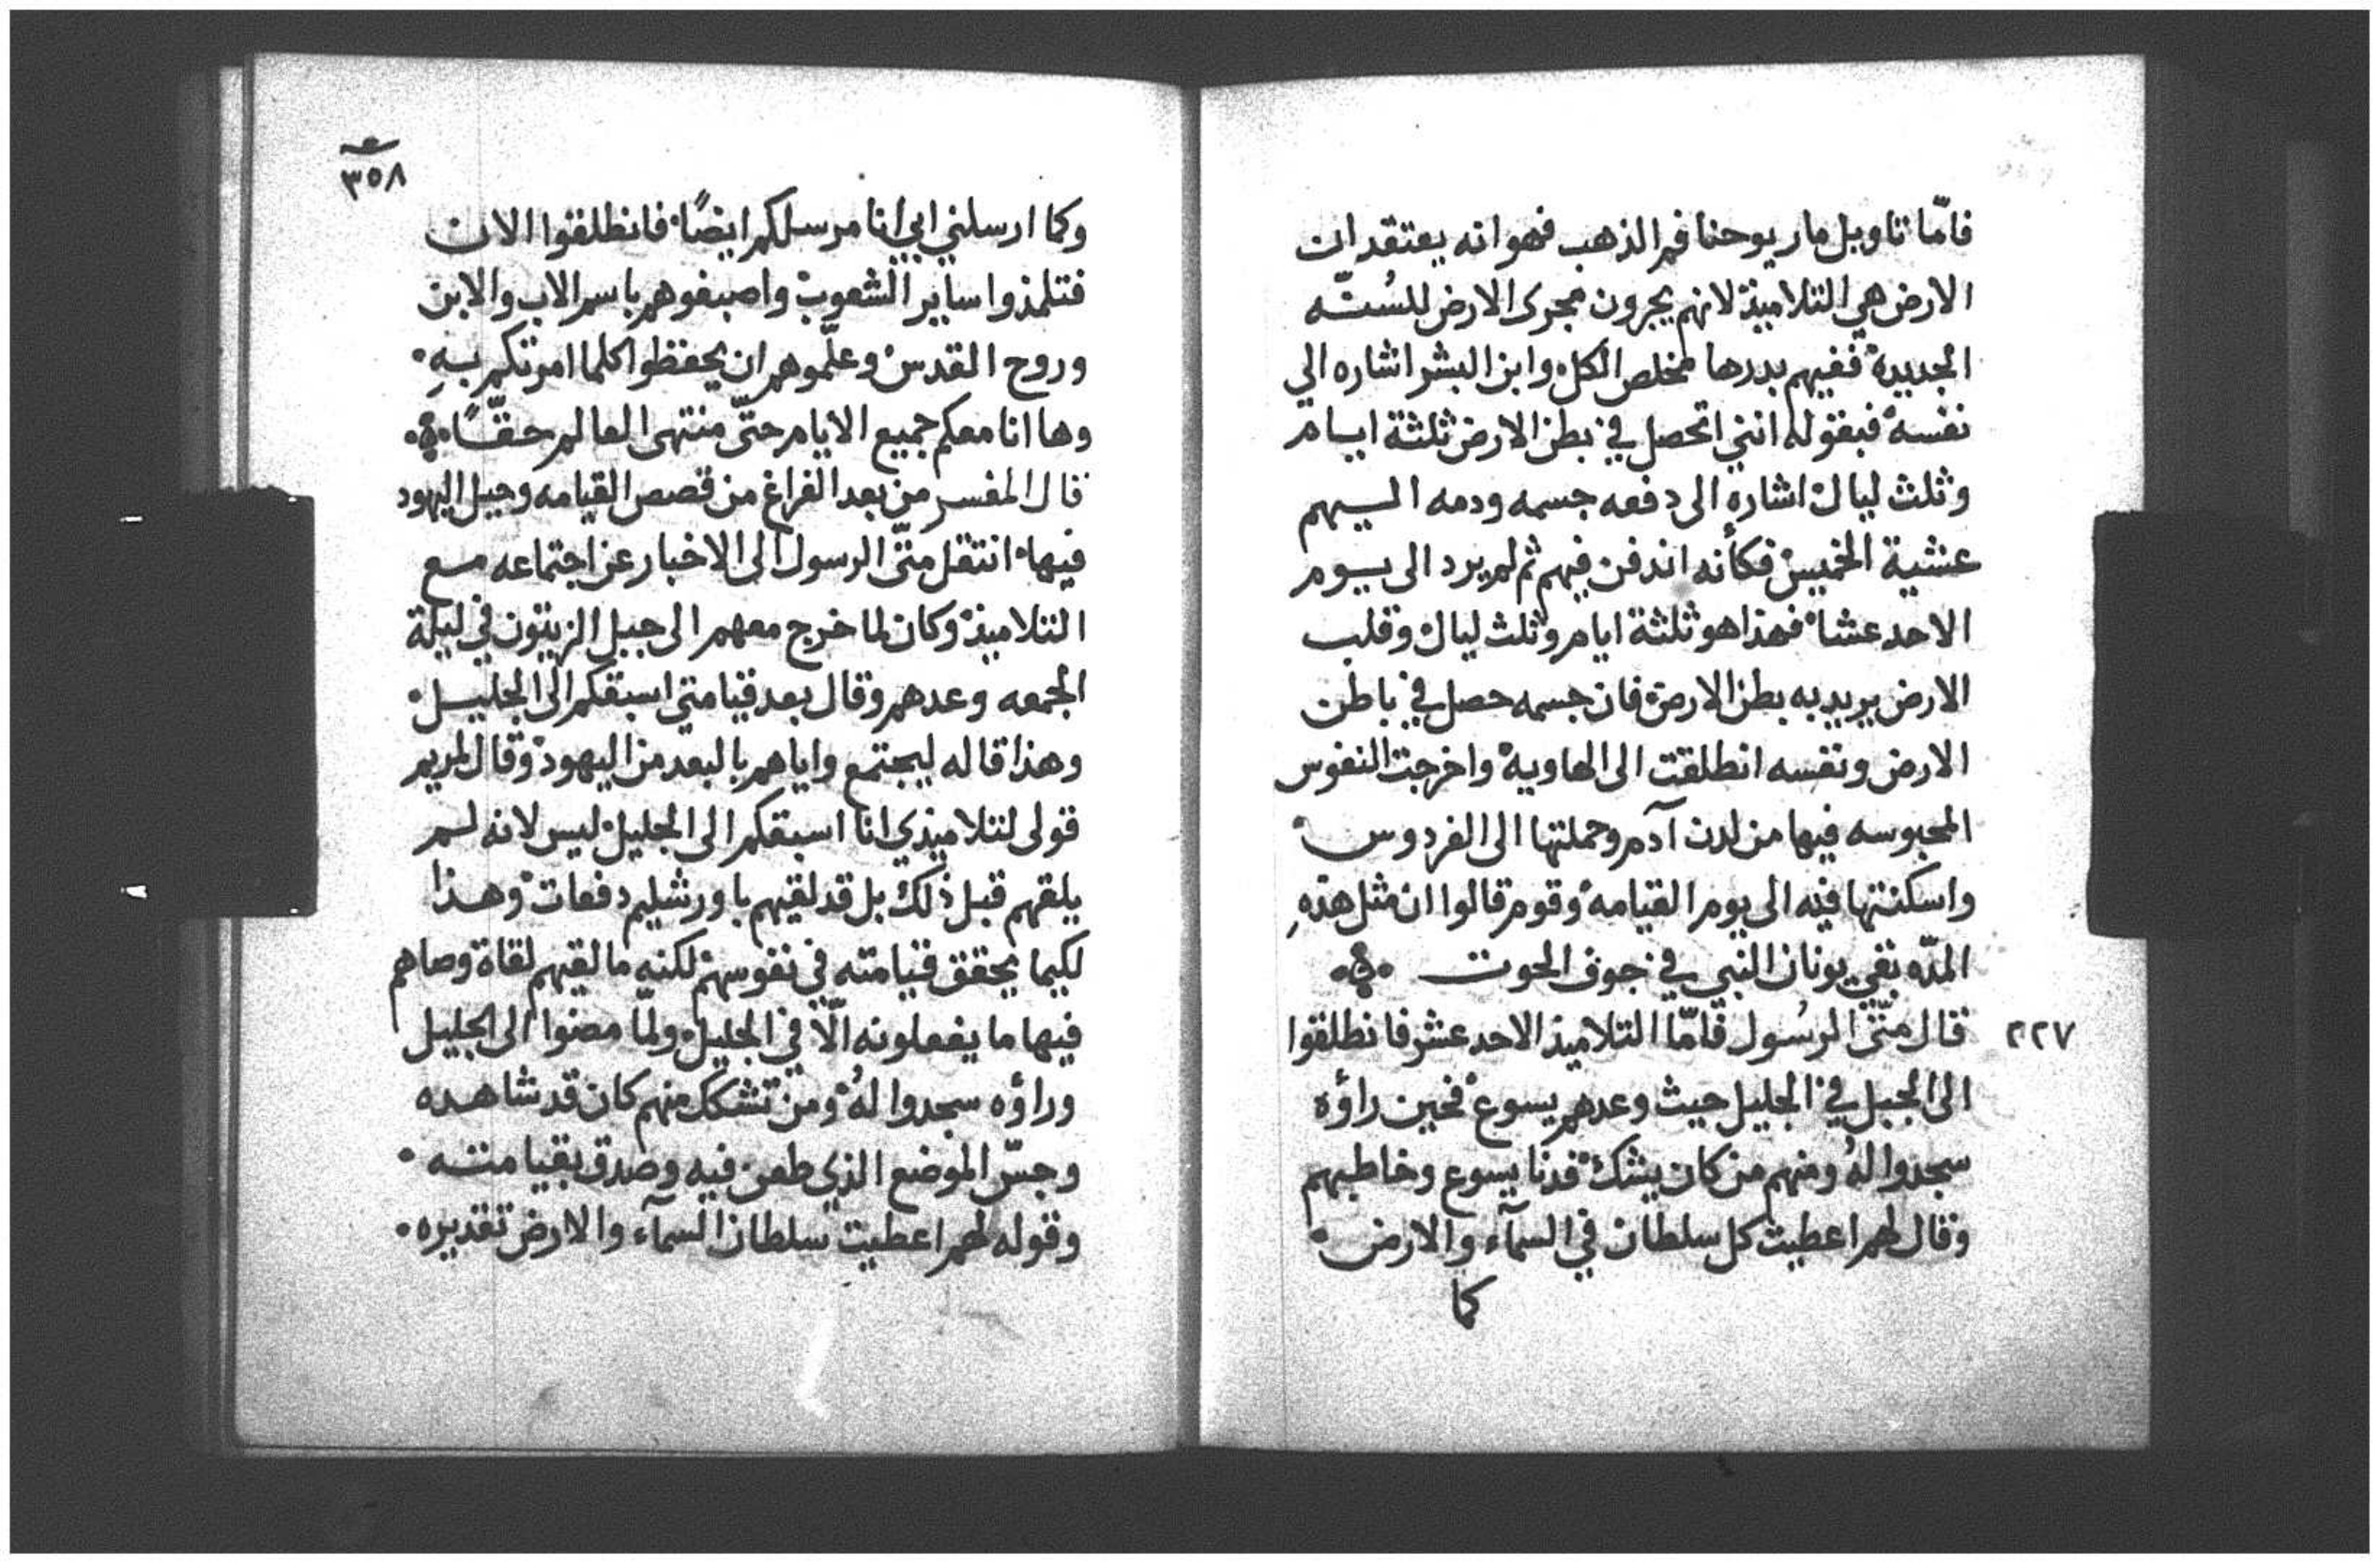 فامّا تاويل مار يوحنا فم الذهب فهو انه يعتقد ان
الارض هي التلاميذ لانهم يجرون مجرى الارض للسُنّه
الجديدة ففيهم بدرها مخلص الكل وابن البشر اشاره الي
نفسه فبقوله انني اتحصل في بطن الارض ثلثة ايام
وثلث ليال اشاره الى دفعه جسمه ودمه اليهم
عشية الخميس فكأنه اندفن فيهم ثم لم يرد الى يوم
الاحد عشا فهذا هو ثلثة ايام وثلث ليال وقلب
الارض يريد به بطن الارض فان جسمه حصل في باطن
الارض ونفسه انطلقت الى الهاويه واخرجت النفوس
المحبوسه فيها من لدن آدم وحملتها الى الفردوس
واسكنتها فيه الى يوم القيامه وقوم قالوا ان مثل هذهِ
المدّه بقي يونان النبي في جوف الحوت
٢٢٧ قال متّى الرسُول فامّا التلاميذ الاحد عشر فانطلقوا
الى الجبل في الجليل حيث وعدهم يسوع فحين راؤه
سجدوا لهُ ومنهم من كان يشك فدنا يسوع وخاطبهم
وقال لهم اعطيت كل سلطان في السمآء والارض
كما
٣٥٨
وكما ارسلني ابي انا مرسلكم ايضًا فانطلقوا الان
فتلمذوا ساير الشعوب واصبغوهم باسم الاب والابن
وروح القدس وعلّموهم ان يحفظوا كلما امرتكم بهِ
وها انا معكم جميع الايام حتّى منتهى العالم حقًّا
قال المفسر من بعد الفراغ من قصص القيامه وحيل اليهود
فيها انتقل متّى الرسول الى الاخبار عن اجتماعه مع
التلاميذ وكان لما خرج معهم الى جبل الزيتون في ليلة
الجمعه وعدهم وقال بعد قيامتي اسبقكم الى الجليل
وهذا قاله ليجتمع واياهم بالبعد من اليهود وقال لمريم
قولى لتلاميذي انا اسبقكم الى الجليل ليس لانه لم
يلقهم قبل ذلك بل قد لقيهم باورشليم دفعات وهذا
لكيما يحقق قيامته في نفوسهم لكنه ما لقيهم لقاة وصاهم
فيها ما يفعلونه الّا في الجليل ولمّا مضوا الى الجليل
وراؤه سجدوا لهُ ومن تشكك منهم كان قد شاهده
وجسّ الموضع الذي طعن فيه وصدق بقيامته
وقوله لهم اعطيت سلطان السمآء والارض تقديره